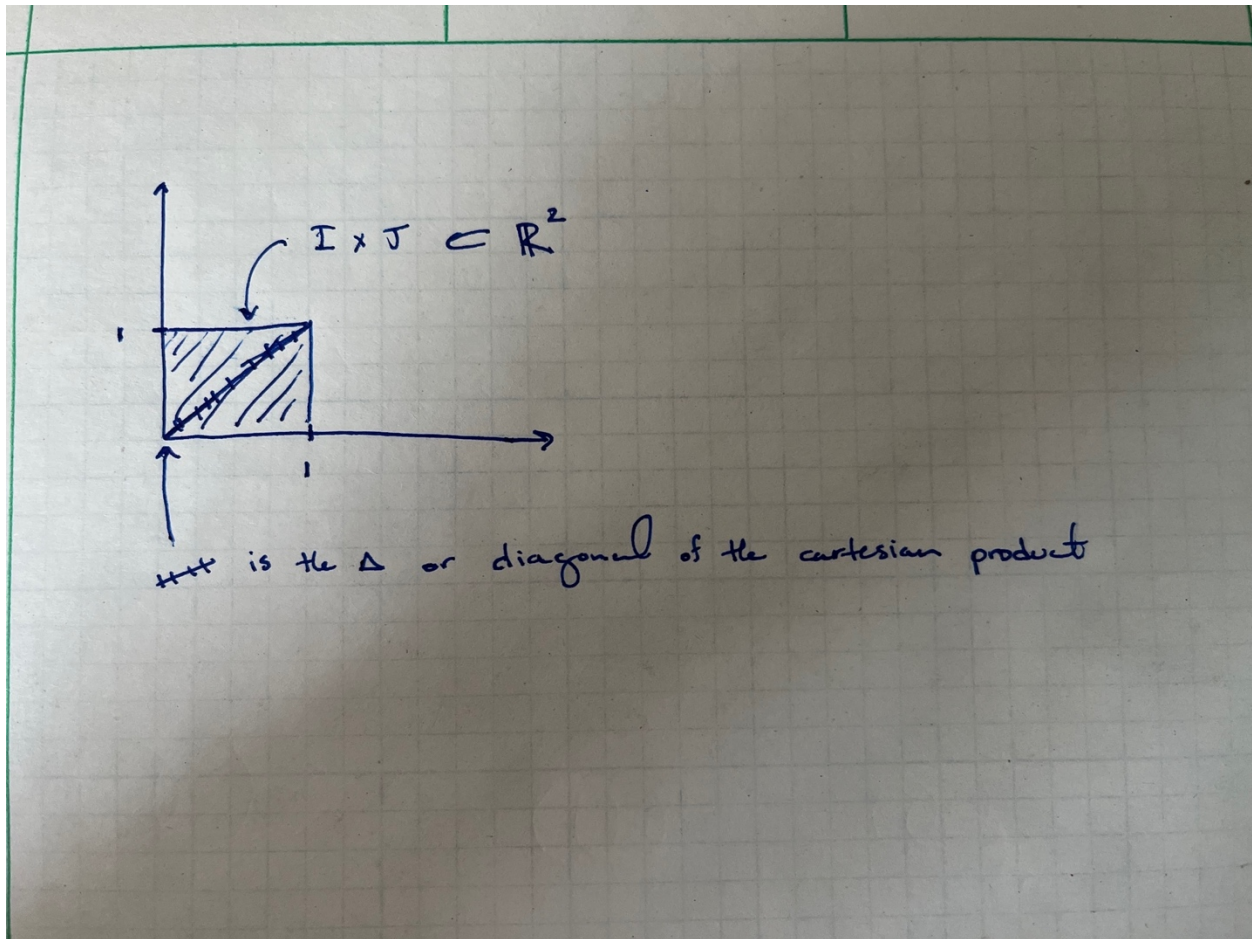 I × J ⊂ ℝ²
1
1
is the Δ or diagonal of the cartesian product